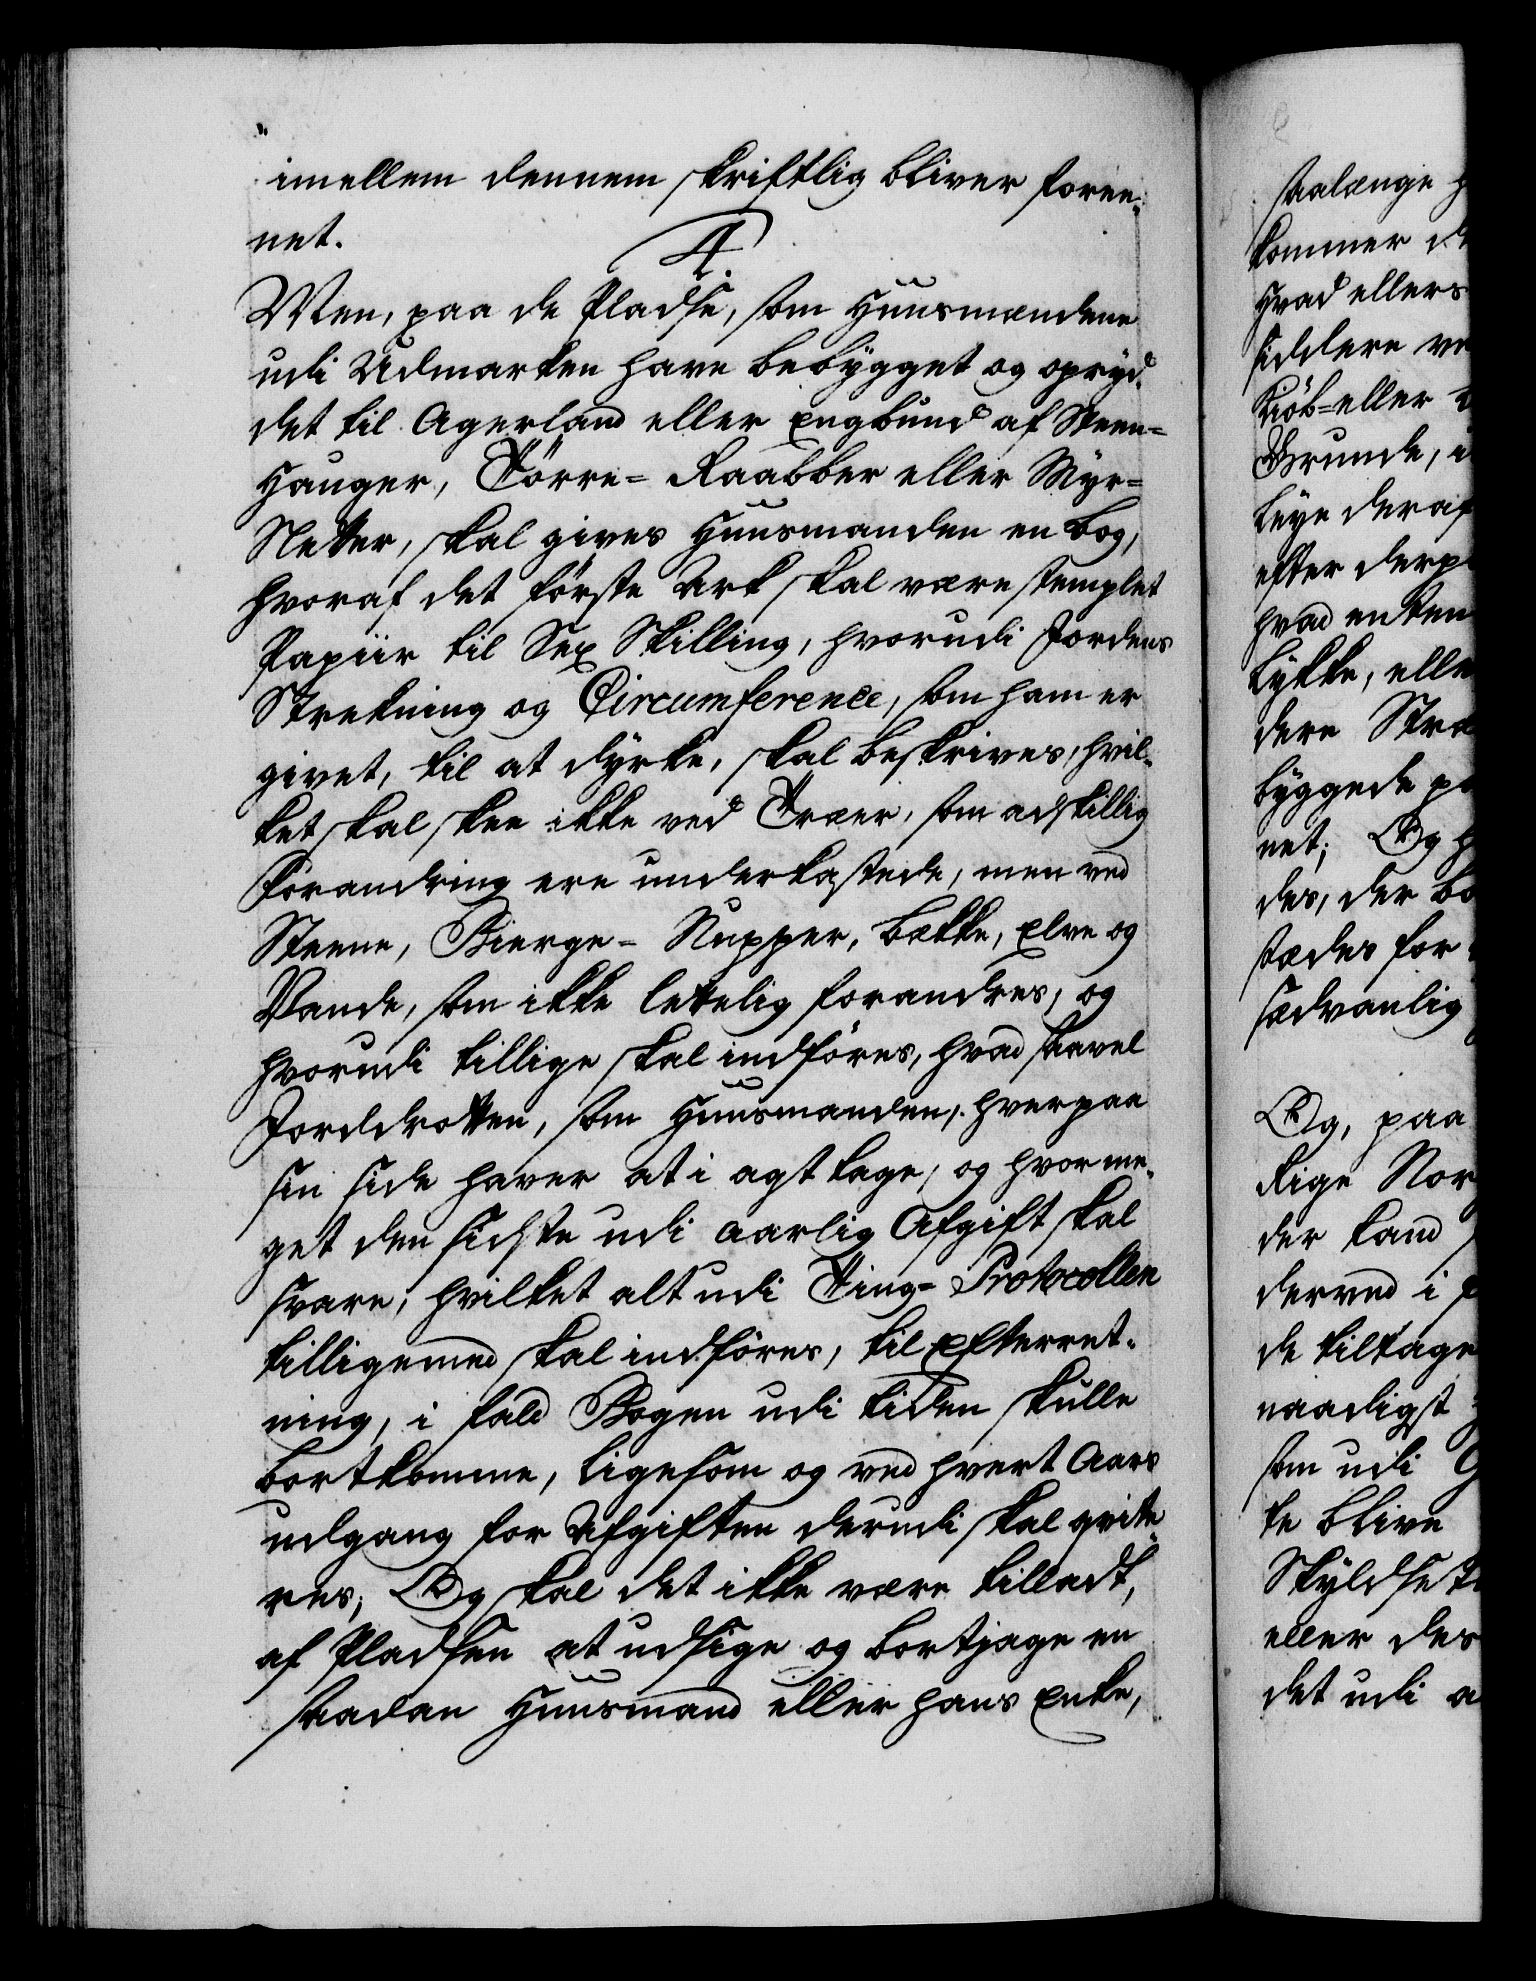 imellem dennem skriftlig bliver foree-
net.
4.
Men, paa de Pladse, som Huusmændene
udi Udmarken have bebygget og opryd-
det til Agerland eller Engbund af Steen-
Hauger, Törre- Raabber eller Myr-
Sletter, skal gives Huusmanden en bog,
hvoraf det förste Ark skal være stemplet
Papiir til Sex Skilling, hvorudi Jordens
Strekning og Circumference, som ham er
givet, til at dyrke, skal beskrives, hvil-
ket skal skee ikke ved Træer, som adskillig
forandring ere underkastede, men ved
Steene, Bierge- Knupper, bekke, Elve og
Vande, som ikke lettelig forandres; og
hvorudi tillige skal indföres, hvad saavel
Jorddrotten, som Huusmanden, hver paa
sin side haver at i agt tage, og hvor me-
get den sidste udi aarlig Afgift skal
svare; hvilket alt udi Ting- Protocollen
tilligemed skal indföres, til Efterret-
ning, i fald Bogen udi tiden skulle
bortkomme, ligesom og ved hvert Aars
udgang for Afgiften derudi skal qvitte-
res; Og skal det ikke være tilladt,
af Pladsen at udsige og bortjage en
saadan Huusmand eller hans Enke,
saalænge
kommer
Hvad ellers
siddere
Kiöb- eller
Grunde,
leye deraf
efter
hvad enten
lykke,
dere
byggede
net; Og
des, der
stædes for
sædvanlig
Og, paa
Rige
der Land
derved i
de tiltage
naadigst
som udi
te blive
eller des
det udi